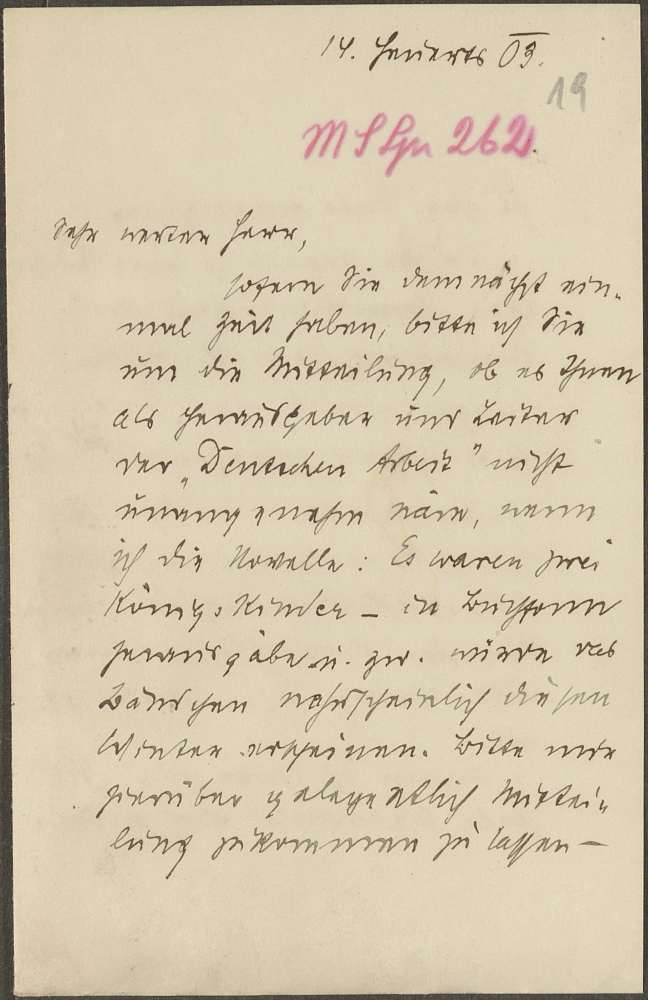 14. Heuerts 03.
19
M S Lyn 262.
Sehr werter Herr,
sofern Sie demnächst ein-
mal Zeit haben, bitte ich Sie
um die Mitteilung, ob es Ihnen
als Herausgeber und Leiter
der „Deutschen Arbeit" nicht
unangenehm wäre, wenn
ich die Novelle: Es waren zwei
Königskinder – in Buchform
herausgäbe u. zw. würde das
Bändchen wahrscheinlich diesen
Winter erscheinen. Bitte mir
hierüber gelegentlich Mittei-
lung zukommen zu lassen –